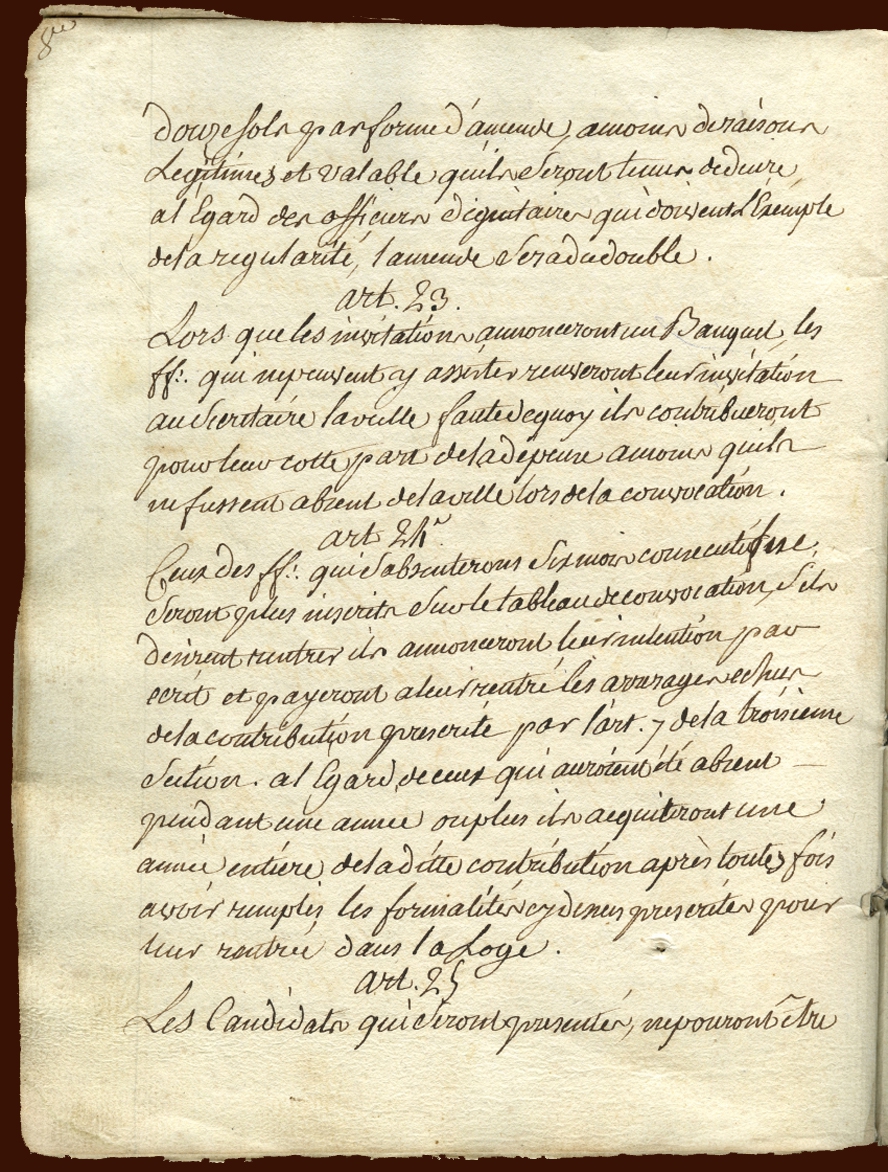 8me
douze sols par forme d'amende, amoins de raisons
Legitimes et valable quils seront tenus dedeuire
al Egard des officiers dignitaires qui doivent l'Exemple
dela regularité, l'amende sera du double.
art. 23.
Lors que les invitations annonceront un Banquet, les
ff∴ qui nepeuvent y assister renverront leur invitation
au Secritaire la veille faute dequoy ils contribueront
pour leur cotte part dela dépense amoins quils
ne fussent absent de la ville lors de la convocation.
art 24e
Ceux des ff∴ qui s'absenterons six mois consecutifs ne
seront plus inscrits sur le tableau de convocation, sils
desirent rentrer ils annonceront leur intention par
ecrit et payeront a leur rentré les arrerages echus
de la contribution prescrite par l'art. 7 de la troisieme
Section. al Egard de ceux qui auroient été absent
pendant une année ou plus ils acquiteront une
année entiére de la ditte contribution après toutes fois
avoir remplis les formalités cy dessus prescrites pour
leur rentrée dans la Loge.
art. 25
Les Candidats qui seront presentés, ne pouront être